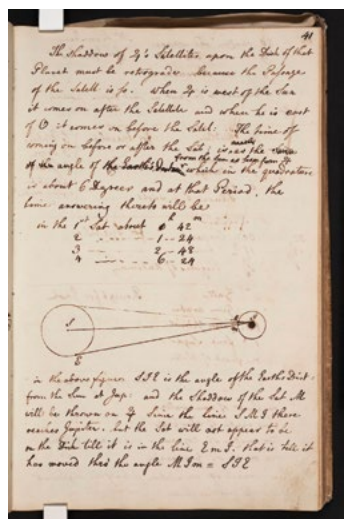 41
The Shadows of ♃'s Satellites upon the Disk of that
Planet must be retrograde because the Passage
of the Satell is so. When ♃ is west of the Sun
it comes on after the Satellite and when he is east
of ☉ it comes on before the Satel: The time of
coming on before or after the Sat; is as the
nearly
of the angle of the Earth's Dist which in the quadrature
from the Sun as seen from ♃
is about 6 Degrees and at that Period, the
time answering thereto will be
h m
in the 1st Sat about 0 42
2 1 - 24
3 2 - 48
4 6 - 24
S
E
in the above figure SIE is the angle of the Earth's Dist.
from the Sun at Jup: and the Shaddow of the Sat M
will be thrown on ♃ Since the line SMI there
reaches Jupiter. but the Sat will not appear to be
on the Disk till it is in the line EmI. that is till it
has moved thro the angle MIm = SIE